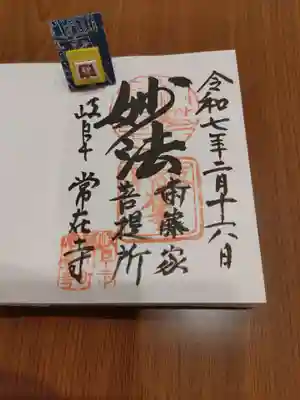 令和七年二月十六日
妙法
斎藤家
菩提所
岐阜 常在寺